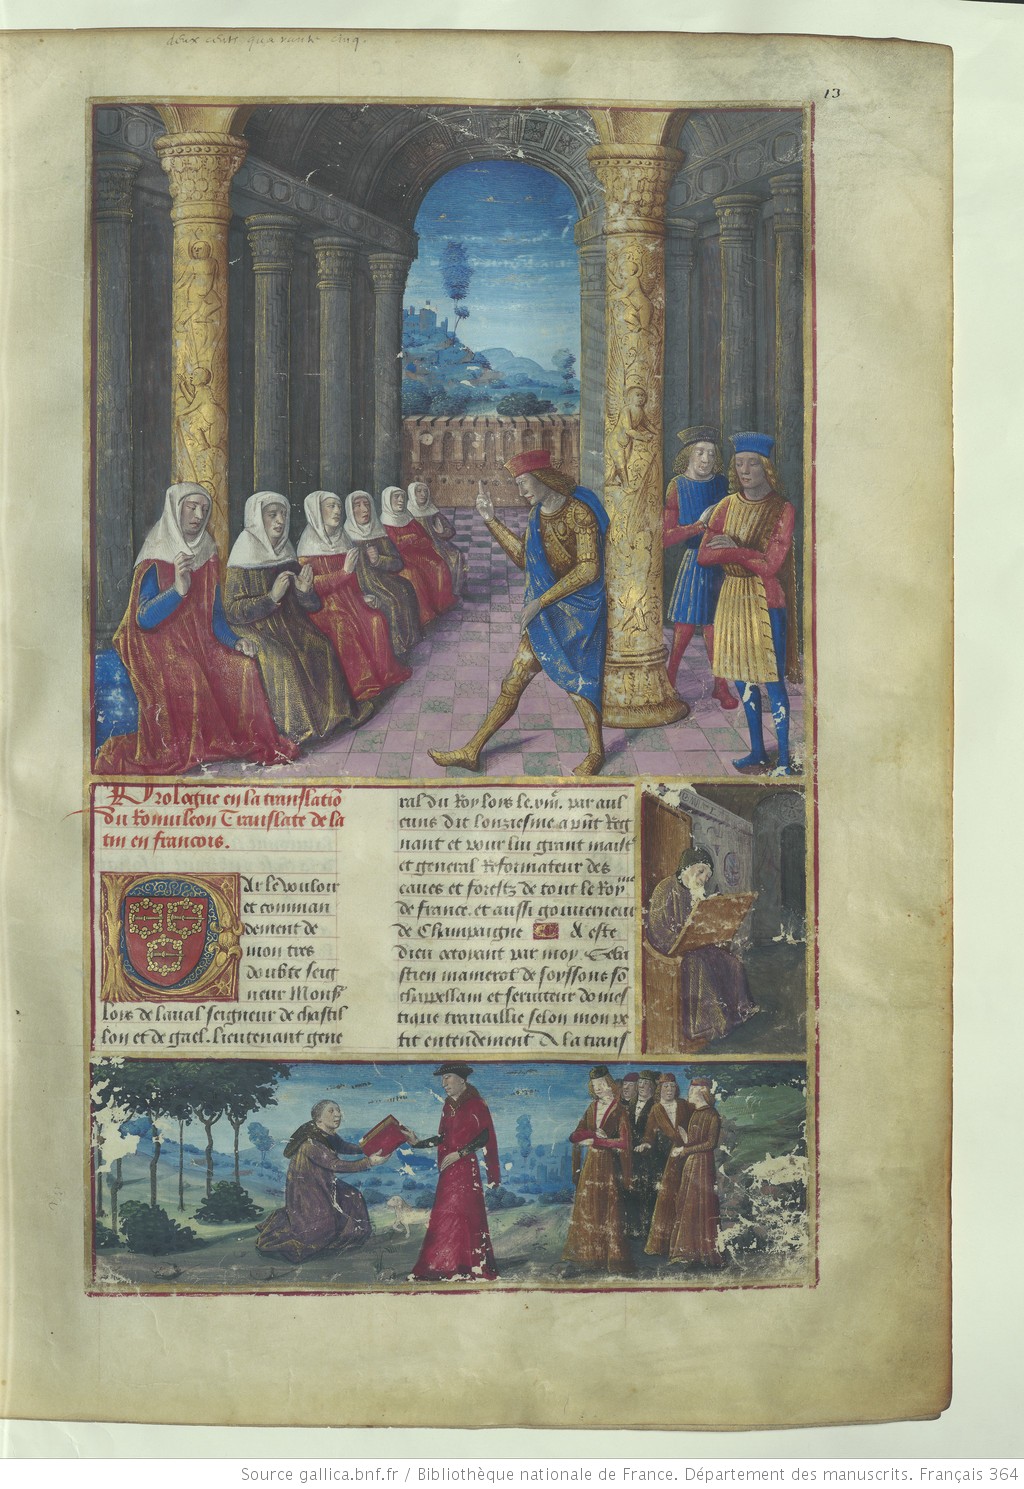 deux cents quarante cinq.
13
Prologue en la translatiō
du Romuleon Translate de la
tin en francois.
Par le vouloir
et comman
dement de
mon tres
doubte seig
neur Monsr
Lois de laual seigneur de chastil
lon et de gael. lieutenant gene
ral du Roy lois le .viiie. par aul
cuns dit lonziesme a pñt Reg
nant et pour lui grant maistre
et general Reformateur des
eaues et forestz de tout le Royme
de france. et aussi gouuerneur
de Champaigne & este
dieu octroyant par moy Seba
stien mamerot de soyssons sō
chappellain et seruiteur domes
tique trauaillie selon mon pe
tit entendement & la trans
Source gallica.bnf.fr / Bibliothèque nationale de France. Département des manuscrits. Français 364